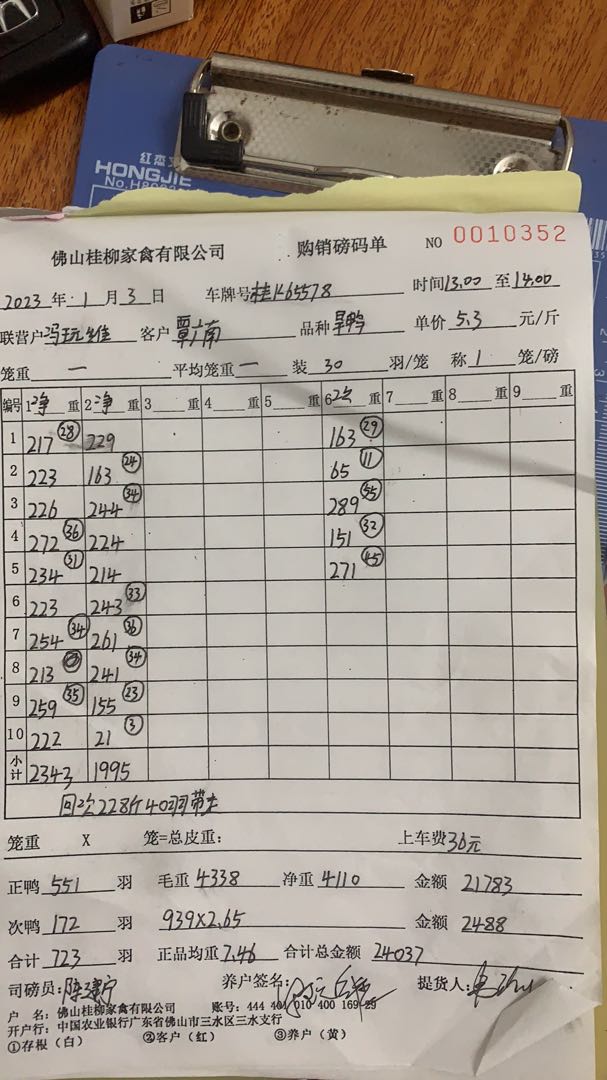 红杰
HONGJIE
佛山桂柳家禽有限公司 购销磅码单 NO 0010352
2023年1月3日 车牌号桂K65578 时间13.00至14.00
联营户 客户覃广南 品种 单价5.3元/斤
笼重 一 平均笼重 一 装 30 羽/笼 称 1 笼/磅
编号 1净重 2净重 3重 4重 5重 6次重 7重 8重 9重
1 217 28 229 163 29
2 223 163 24 65 11
3 226 244 34 289 55
4 272 36 224 151 32
5 234 31 214 271 45
6 223 243 33
7 254 34 261 36
8 213 241 34
9 259 35 155 23
10 222 21 3
小计 2343 1995
回次228斤40羽带走
笼重 X 笼=总皮重： 上车费36元
正鸭 551 羽 毛重 4338 净重 4110 金额 21783
次鸭 172 羽 939X2.65 金额 2488
合计 723 羽 正品均重 7.46 合计总金额 24037
司磅员： 养户签名： 提货人：
户 名：佛山桂柳家禽有限公司 账号：444 401 010 400 169 29
开户行：中国农业银行广东省佛山市三水区三水支行
①存根（白） ②客户（红） ③养户（黄）